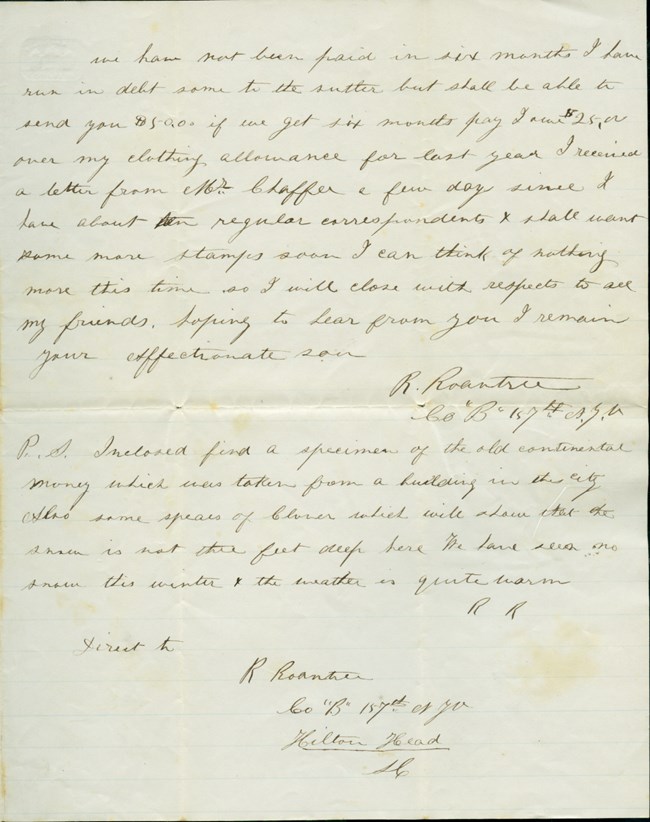 we have not been paid in six months I have
run in debt some to the sutter but shall be able to
send you $50.00 if we get six months pay I owe $25, or
over my clothing allowance for last year I received
a letter from Mr. Chaffee a few day since I
have about ten regular correspondents & shall want
some more stamps soon I can think of nothing
more this time so I will close with respects to all
my friends. hoping to hear from you I remain
your affectionate son
R. Roantree
Co "B" 157th N.Y.V
P. S. Inclosed find a specimen of the old continental
money which was taken from a building in the city
Also some spears of Clover which will show that the
snow is not thre feet deep here We have seen no
snow this winter & the weather is quite warm
R R
Direct to
R Roantree
Co "B" 157th N YV
Hilton Head
SC